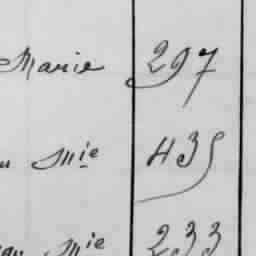 Marie 297
Mie 435
Mie 233